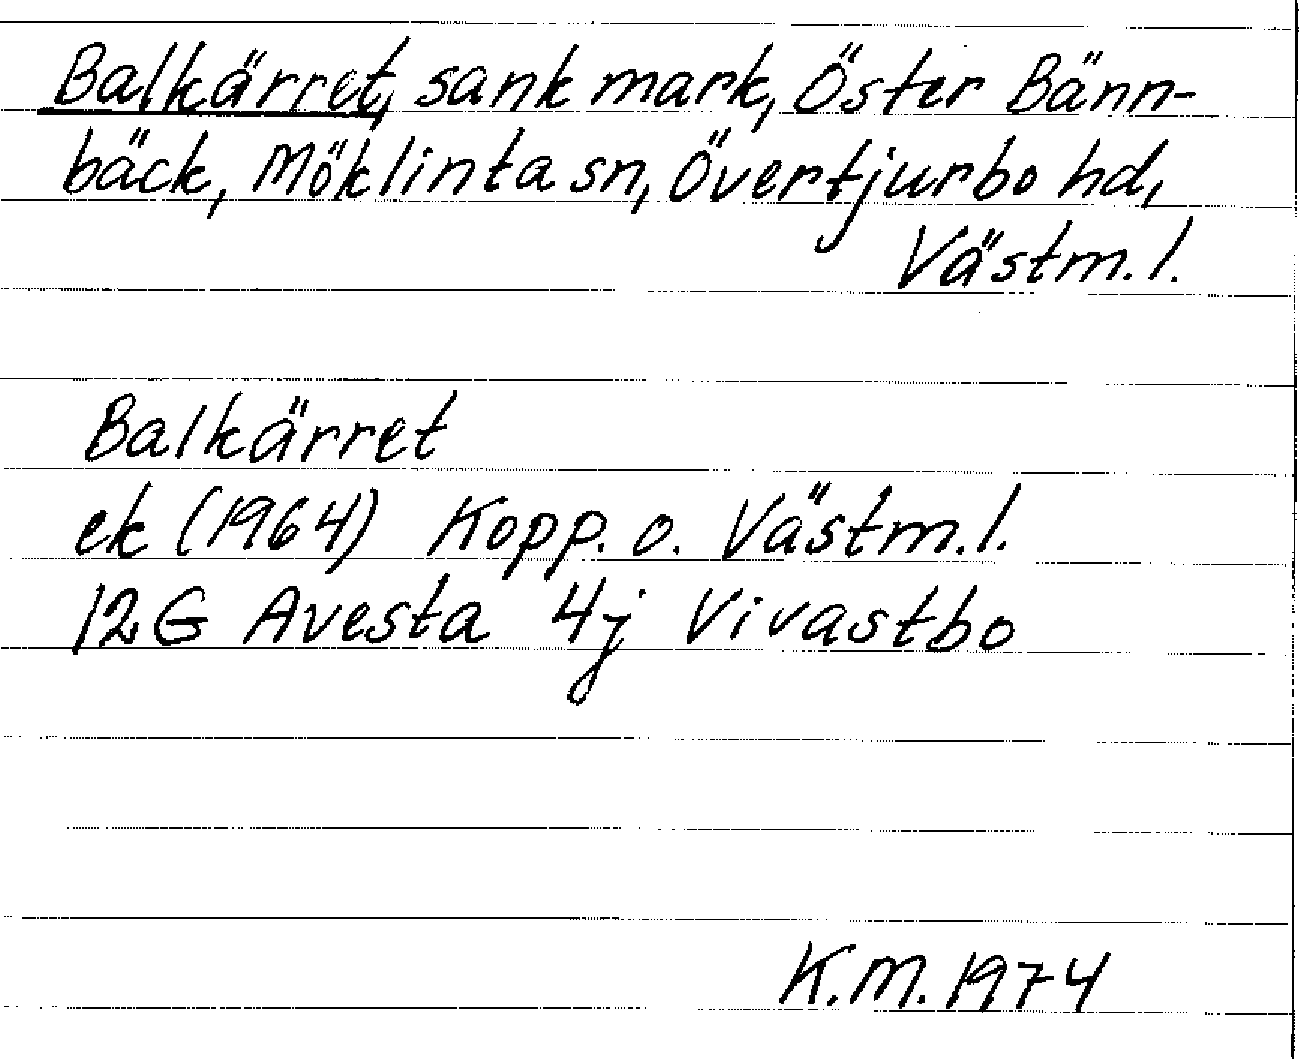 Balkärret, sank mark, Öster Bänn-
bäck, Möklinta sn, Övertjurbo hd,
Västm. l.
Balkärret
ek (1964) Kopp. o. Västm. l.
12G Avesta 4j Vivastbo
K.M. 1974